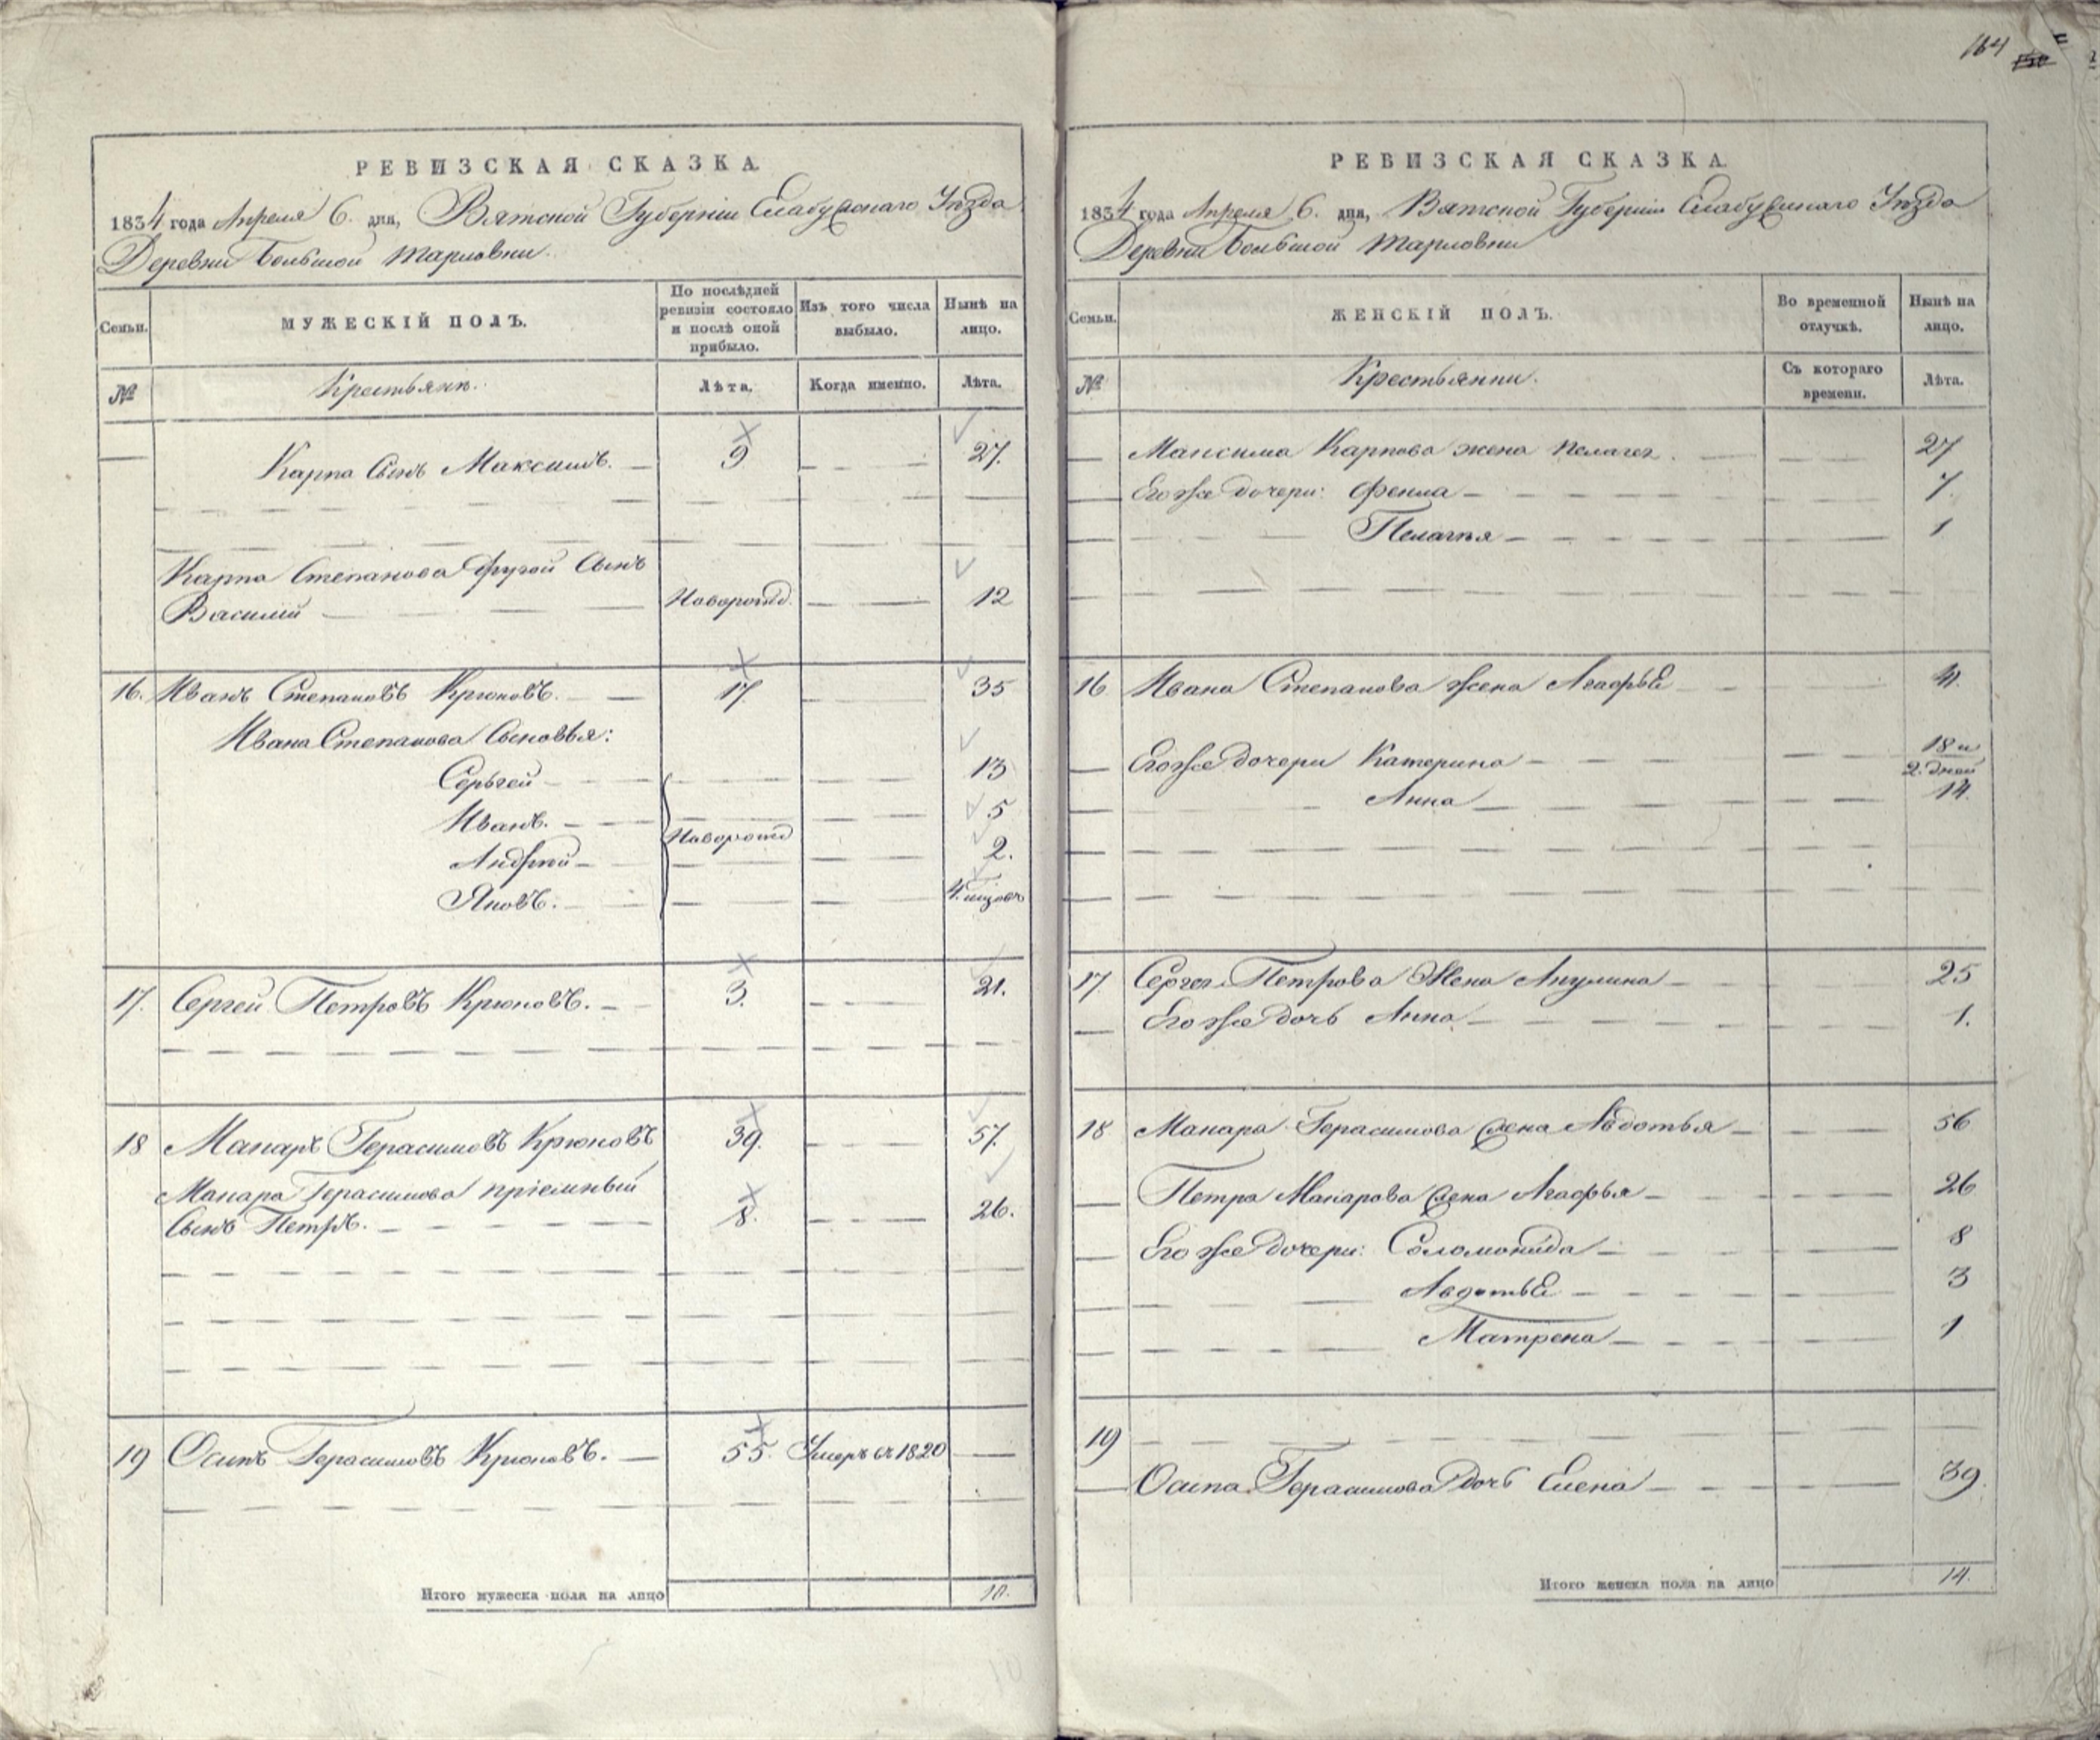 164
РЕВИЗСКАЯ СКАЗКА.
1834 года Апреля 6. дня, Вятской Губернiи Елабускаго Уѣзда
Деревни Большой Тарловки
Семьи.
МУЖЕСКIЙ ПОЛЪ.
По послѣдней ревизiи состояло и послѣ оной прибыло.
Изъ того числа выбыло.
Нынѣ на лицо.
№
Крестьяне.
Лѣта.
Когда именно.
Лѣта.
Карпа Сынъ Максимъ. 9 27.
Карпа Степанова другой Сынъ
Василий Новорожд. 12
16. Иванъ Степановъ Крюковъ. 17. 35
Ивана Степанова Сыновья:
Серьгей 13
Иванъ. 5
Новорожд
Андрей 2.
Яковъ. 4. мѣсяцъ
17. Сергей Петровъ Крюковъ. 3. 21.
18 Макаръ Герасимовъ Крюковъ 39. 57.
Макара Герасимова прiемный
Сынъ Петръ. 8. 26.
19 Осипъ Герасимовъ Крюковъ. 55. Умеръ въ 1820
Итого мужеска пола на лицо 10.
РЕВИЗСКАЯ СКАЗКА.
1834 года Апреля 6. дня, Вятской Губернiи Елабускаго Уѣзда
Деревни Большой Тарловки
Семьи.
ЖЕНСКIЙ ПОЛЪ.
Во временной отлучкѣ.
Нынѣ на лицо.
№
Крестьянки.
Съ котораго времени.
Лѣта.
Максима Карпова жена Пелагея. 27
Его же дочери: Фекла 7.
Пелагея 1
16 Ивана Степанова жена Агафья 41.
Его же дочери Катерина 18 и
2. дней
Анна 14.
17 Сергея Петрова Жена Акулина 25
Его же дочь Анна 1.
18 Макара Герасимова жена Авдотья 56
Петра Макарова жена Агафья 26
Его же дочери: Соломонида 8
Авдотья 3
Матрена 1
19
Осипа Герасимова дочь Елена 39
Итого женска пола на лицо 14.